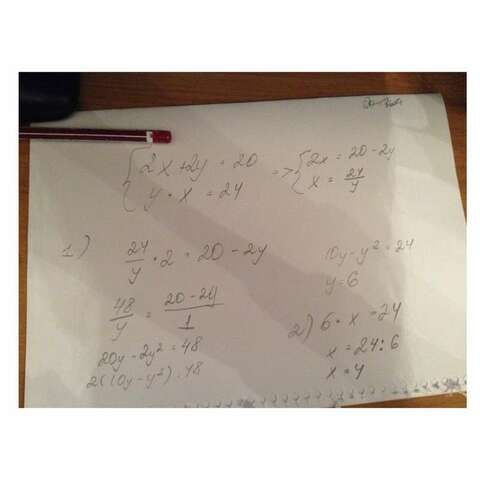 2x + 2y = 20
y * x = 24
=> 2x = 20 - 2y
x = 24/y
1) 24/y * 2 = 20 - 2y
48/y = 20 - 2y/1
20y - 2y² = 48
2(10y - y²) = 48
10y - y² = 24
y = 6
2) 6 * x = 24
x = 24 : 6
x = 4